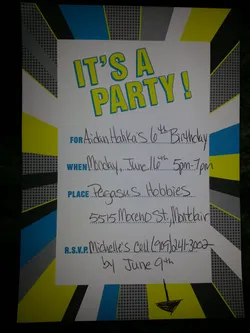 IT'S A
PARTY!
FOR Aidan Halika's 6th Birthday
WHEN Monday, June 16th 5pm-7pm
PLACE Pegasus Hobbies
5515 Moreno St, Montclair
R.S.V.P. Michelle's Cell
by June 9th